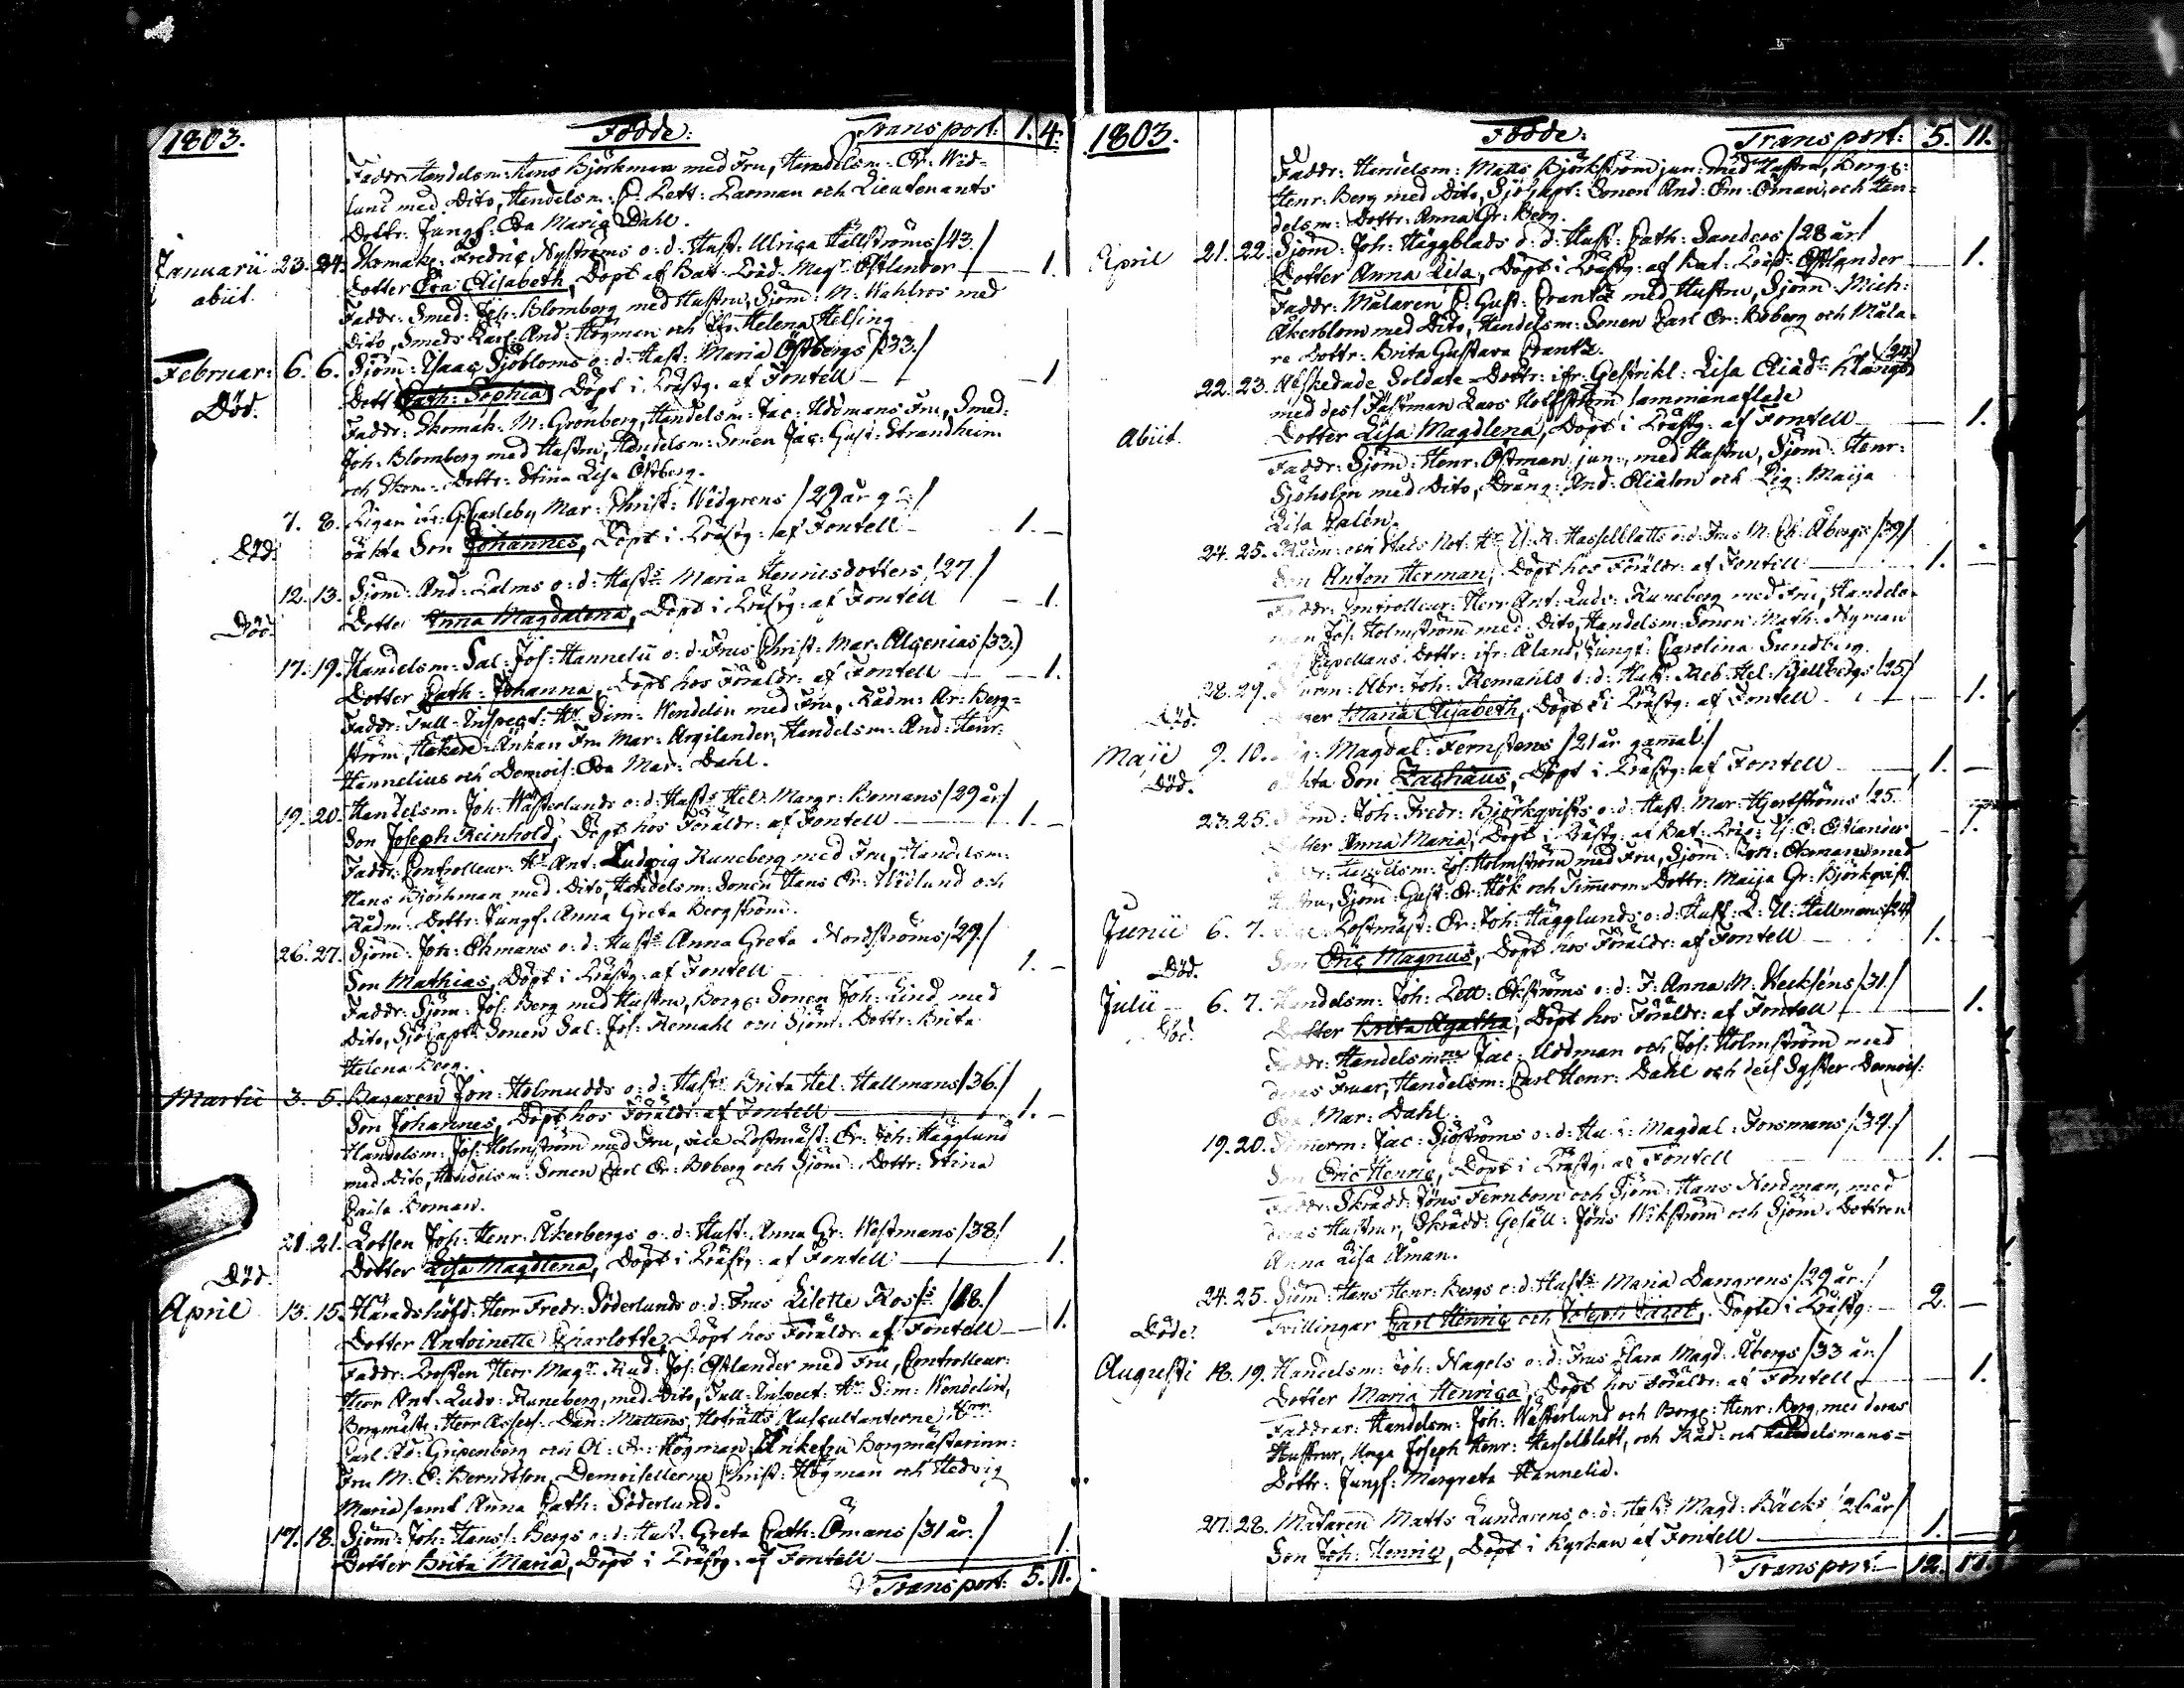 1803. Födde: Transport: 1. 4.
Faddr: Handelsm: Hans Björkman med Fru, Handelsm: Er: Wid-
lund med Dito, Handelsm: P. Zett: Zarman och Lieutenants
Dottr: Jungf: Eva Maria Dahl.
Januarii 23. 24. Skomak: Fredric Nyströms o: d: Hust: Ulrica Hällströms /43./
abiit. Dotter Eva Elisabeth, Döpt af Bat: Präd: Magr Östlander — 1.
Faddr: Smed: Joh: Blomberg med Hustru, Sjöm: M: Wahlros med
Dito, Smeds Karl: And: Högman och Helena Helsing
Februar: 6. 6. Sjöm: Isaac Sjöbloms o: d: Hust: Maria Östbergs /33./
Död. Dott Cath: Sophia, Döpt i Prästg: af Fontell — 1
Faddr: Skomak: M: Grönberg, Handelsm: Jac: Uddmans Fru, Smed:
Joh: Blomberg med Hustru, Handelsm: Sonen Jac: Gust: Strandheim
och Skom: Dottr: Stina Lisa Östberg.
7. 8. Pigan ifr: G: Carleby Mar: Christ: Widgrens /29 år gl:/
Död: oäkta Son Johannes, Döpt i Prästg: af Fontell — 1. —
12. 13. Sjöm: And: Palms o: d: Hust: Maria Henricsdotters /27./
Död. Dotter Anna Magdalena, Döpt i Prästg: af Fontell — 1.
17. 19. Handelsm: Sal: Jos: Hannelii o: d: Frus Christ: Mar: Alcenias /33.)
Dotter Cath: Johanna, Döpt hos Föräldr: af Fontell — 1.
Faddr: Tull-Inspect: Hr Sim: Wendelin med Fru, Rådm: Ar: Berg-
ström, Enkan Fru Mar: Argilander, Handelsm: And: Henr:
Hannelius och Demois: Eva Mar: Dahl.
19. 20. Handelsm: Joh: Wästerlunds o: d: Husts Hel: Margr: Bomans /29 år/
Son Joseph Reinhold, Döpt hos Föräldr: af Fontell — 1. —
Faddr: Controlleur: Hr Ant: Ludvig Runeberg med Fru, Handelsm:
Hans Björkman med Dito, Handelsm: Sonen Hans Er: Widlund och
Rådm: Dottr: Jungf: Anna Greta Bergström.
26. 27. Sjöm: Joh: Ekmans o: d: Husts Anna Greta Nordströms /29./
Son Mathias, Döpt i Prästg: af Fontell — 1. —
Faddr: Sjöm: Jos: Berg med Hustru, Borg: Sonen Joh: Lind med
Dito, SjöCapt: Sonen Sal: Jos: Remahl och Sjöm: Dottr: Brita
Helena Berg.
Martii 3. 5. Bagaren Jon: Holmudds o: d: Husts Brita Hel: Hallmans /36./
Son Johannes, Döpt hos Föräldr: af Fontell — 1. —
Handelsm: Jos: Holmström med Fru, vice Postmäst: Er: Joh: Hägglund
med Dito, Handelsm: Sonen Carl Er: Boberg och Sjöm: Dottr: Stina
Caisa Boman.
21. 21. Lotsen Joh: Henr: Åkerbergs o: d: Hust: Anna Gr: Westmans /38/
Död. Dotter Lisa Magdlena, Döpt i Prästg: af Fontell — 1.
April 13. 15. Häradshöfd: Herr Fredr: Söderlunds o: d: Frus Lisette Ross's /18./
Dotter Antoinette Charlotte, Döpt hos Föräldr: af Fontell — 1.
Faddr: Prosten Herr Magr Rud: Jos: Östlander med Fru, Controlleur:
Herr Ant: Ludv: Runeberg, med Dito, Tull-Inspect: Hr Sim: Wendelin,
Borgmäst: Herr Assess: Dan: Mattens, Hofrätts Auscultanterne Herr
Carl Ad: Gripenberg och Ol: Er: Högman, Enkefru Borgmästarinn:
Fru M: C: Berndtson, Demoisellerne Christ: Högman och Hedvig
Maria samt Anna Cath: Söderlund.
17. 18. Sjöm: Joh: Hans: Bergs o: d: Hust: Greta Cath: Ömans /31 år:/
Dotter Brita Maria, Döpt i Prästg: af Fontell — 1.
Transport: 5. 11.
1803. Födde: Transport: 5. 11.
Faddr: Handelsm: Matts Björkström jun: med Hustru, Borg:
Henr: Berg med Dito, SjöCapt: Sonen And: Em: Öman, och Han-
delsm: Dottr: Anna Gr: Berg.
April 21. 22. Sjöm: Joh: Häggblads o: d: Hust: Cath: Sanders /28 år/
Dotter Anna Lisa, Döpt i Prästg: af Bat: Präd: Östlander — 1.
Faddr: Målaren C: Gust: Frantz med Hustru, Sjöm: Mich:
Åkerblom med Dito, Handelsm: Sonen Carl Er: Boberg och Måla-
re Dottr: Brita Gustava Frantz.
22. 23. Afskedade Soldate-Dottr: ifr: Gestrikl: Lisa Klangs (24)
med dess Fästman Lars Holfström sammanaflade
Abiit Dotter Lisa Magdlena, Döpt i Prästg: af Fontell — 1.
Faddr: Sjöm: Henr: Östman jun: med Hustru, Sjöm: Henr:
Sjöholm med Dito, Dräng: And: och Pig: Maija
Lisa Palén.
24. 25. Rådm: och Stads Not: Hr U: R: Hasselblatts o: d: Frus M: Ch: Åbergs /39/
Son Anton Herman, Döpt hos Föräldr: af Fontell — 1. —
Faddr: Controlleur: Herr Ant: Ludv: Runeberg med Fru, Handels-
man Jos: Holmström med Dito, Handelsm: Sonen Math: Nyman
och Capellans Dottr: ifr: Åland, Jungf: Carolina Sundberg.
28. 29. Abr: Joh: Remahls o: d: Hust: Reb: Hel: Kjellbergs /25/
Död. Dotter Maria Elisabeth, Döpt i Prästg: af Fontell — 1.
Maji 9. 10. Pig: Magdal: Fernstens /21 år gammal:/
Död. oäkta Son Zachäus, Döpt i Prästg: af Fontell — 1. —
23. 25. Sjöm: Joh: Fredr: Björkqvists o: d: Hust: Mar: Hjortströms /25.
Dotter Anna Maria, Döpt i Prästg: af Bat: Präd: — 1.
Faddr: Handelsm: Jos: Holmström med Fru, Sjöm: Joh: Ekman med
Hustru, Sjöm: Gust: Er: Hök och Timmerm: Dottr: Maija Gr: Björkqvist.
Junii 6. 7. Vice Postmäst: Er: Joh: Hägglunds o: d: Hust: L: U: Hallmans /24/
Död. Son Eric Magnus, Döpt hos Föräldr: af Fontell — 1. —
Julii 6. 7. Handelsm: Joh: Zett: Ekströms o: d: F: Anna M: Wecksens /31./
Död. Dotter Brita Agatha, Döpt hos Föräldr: af Fontell — 1.
Faddr: Handelsmne Jac: Uddman och Jos: Holmström med
deras Fruar, Handelsm: Carl Henr: Dahl och dess Syster Demois:
Eva Mar: Dahl.
19. 20. Timerm: Jac: Sjöströms o: d: Hust: Magdal: Forsmans /34./
Son Eric Henric, Döpt i Prästg: af Fontell — 1. —
Faddr: Skrädd: Jöns Fernbom och Sjöm: Hans Nordman, med
deras Hustrur, Skrädd: Gesäll: Jöns Wikström och Sjöm: Dottren
Anna Lisa Åman.
24. 25. Sjöm: Hans Henr: Bergs o: d: Husts Maria Dangrens /29 år./
Döde. Tvillingar Carl Henric och Joseph, Döpte i Prästg: — 2. —
Augusti 18. 19. Handelsm: Joh: Nagels o: d: Frus Clara Magd: Åbergs /33 år./
Dotter Maria Henrica, Döpt hos Föräldr: af Fontell — 1.
Faddrar: Handelsm: Joh: Wästerlund och Borge: Henr: Berg med deras
Hustrur, Unga Joseph Henr: Hasselblatt, och Råd- och Handelsmans-
Dottr: Jungf: Margreta Hannelia.
27. 28. Matts o: d: Husts Magd: Bäcks /26 år/
Son Joh: Henric, Döpt i Kyrkan af Fontell — 1. —
Transport: — 12. 17.